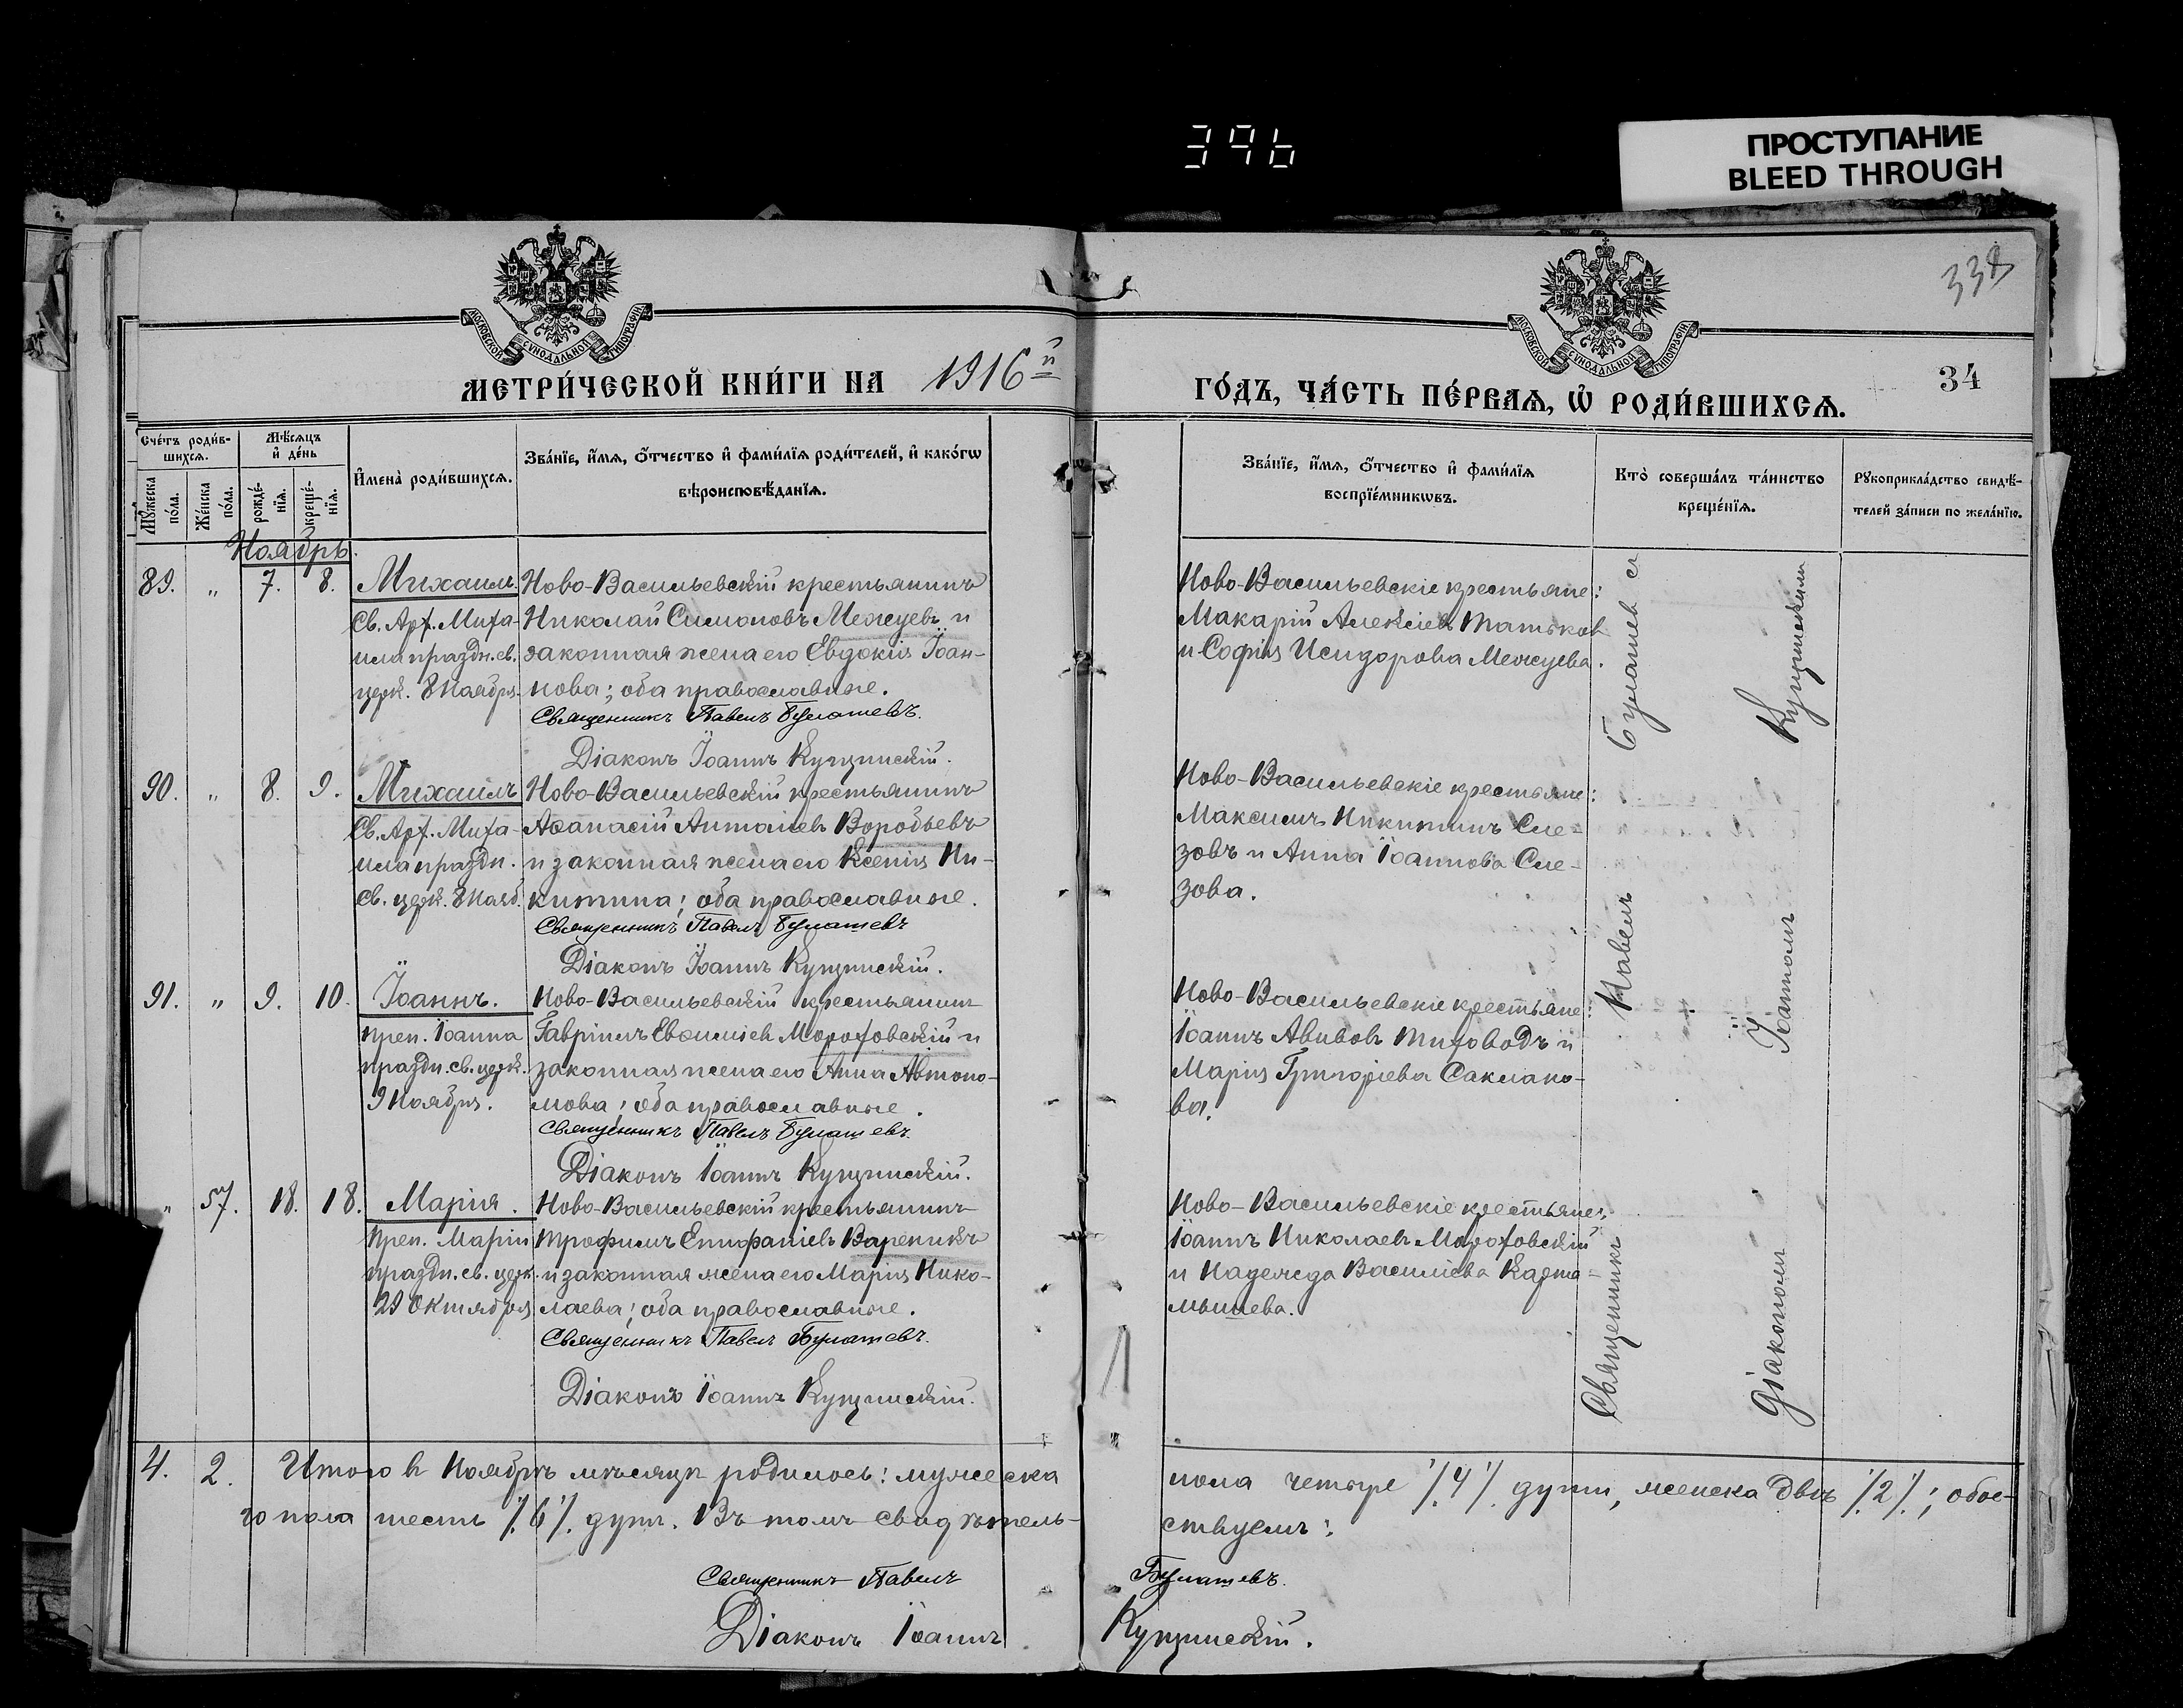 396
ПРОСТУПАНИЕ
BLEED THROUGH
338
МОСКОВСКОЙ СУНОДАЛЬНОЙ ТИПОГРАФІИ
МОСКОВСКОЙ СУНОДАЛЬНОЙ ТИПОГРАФІИ
МЕТРИ́ЧЕСКОЙ КНИ́ГИ НА 1916й
ГО́ДЪ, ЧА́СТЬ ПЕ́РВАѦ, Ѡ҆ РОДИ́ВШИХСѦ.
34
Сче́тъ роди́в-
шихсѧ.
Мѣ́сѧцъ
и҆ де́нь
Мꙋ́жеска
по́ла.
Же́нска
по́ла.
рожде́-
нїѧ.
креще́-
нїѧ.
И҆мена̀ роди́вшихсѧ.
Зва́нїе, и҆́мѧ, ѻ҆́тчество и҆ фами́лїѧ роди́телей, и҆ како́гѡ
вѣроисповѣ́данїѧ.
Зва́нїе, и҆́мѧ, ѻ҆́тчество и҆ фами́лїѧ
воспрїе́мникѡвъ.
Кто̀ соверша́лъ та́инство
креще́нїѧ.
Рꙋкоприкла́дство свидѣ́-
телей за́писи по жела́нїю.
Ноябрь.
89. " 7. 8. Михаилъ
Св. Арх. Миха-
ила праздн. св.
церк. 8 Ноября.
Ново-Васильевскій крестьянинъ
Николай Симоновъ Межуевъ и
законная жена его Евдокія Іоан-
нова; оба православные.
Священникъ Павелъ Булашевъ.
Діаконъ Іоаннъ Купчинскій.
Ново-Васильевскіе крестьяне:
Макарій Алексіевъ Татьков
и Софія Исидорова Межуева.
90. " 8. 9. Михаилъ
Св. Арх. Миха-
ила праздн.
св. церк. 8 Нояб.
Ново-Васильевскій крестьянинъ
Аѳанасій Антоніевъ Воробьевъ
и законная жена его Ксенія Ни-
китина; оба православные.
Священникъ Павелъ Булашевъ
Діаконъ Іоаннъ Купчинскій.
Ново-Васильевскіе крестьяне:
Максимъ Никитинъ Сле-
зовъ и Анна Іоаннова Сле-
зова.
91. " 9. 10. Іоаннъ.
преп. Іоанна
праздн. св. церк.
9 Ноября.
Ново-Васильевскій крестьянинъ
Гавріилъ Евѳиміев Мороховскій и
законная жена его Анна Автоно-
мова; оба православные.
Священникъ Павелъ Булашевъ.
Діаконъ Іоаннъ Купчинскій.
Ново-Васильевскіе крестьяне:
Іоаннъ Авивовъ Тиховодъ и
Марія Григоріева Саклако-
ва.
" 57. 18. 18. Мария.
преп. Маріи
праздн. св. церк.
29 Октября
Ново-Васильевскій крестьянинъ
Трофимъ Епифаніевъ Вареникъ
и законная жена его Марія Нико-
лаева; оба православные.
Священникъ Павелъ Булашевъ.
Діаконъ Іоаннъ Купчинскій.
Ново-Васильевскіе крестьяне:
Іоаннъ Николаевъ Мороховскій
и Надежда Василіева Карта-
мышева.
Священникъ Павелъ Булашев съ
діакономъ Іоанномъ Купчинскимъ
4. 2. Итого в Ноябрѣ мѣсяцѣ родилось: мужеска
пола четыре /.4/. души, женска двѣ /.2/.; обое-
го пола шесть /.6/. душъ. Въ томъ свидѣтель-
ствуемъ:
Священникъ Павелъ Булашевъ.
Діаконъ Іоаннъ Купчинскій.